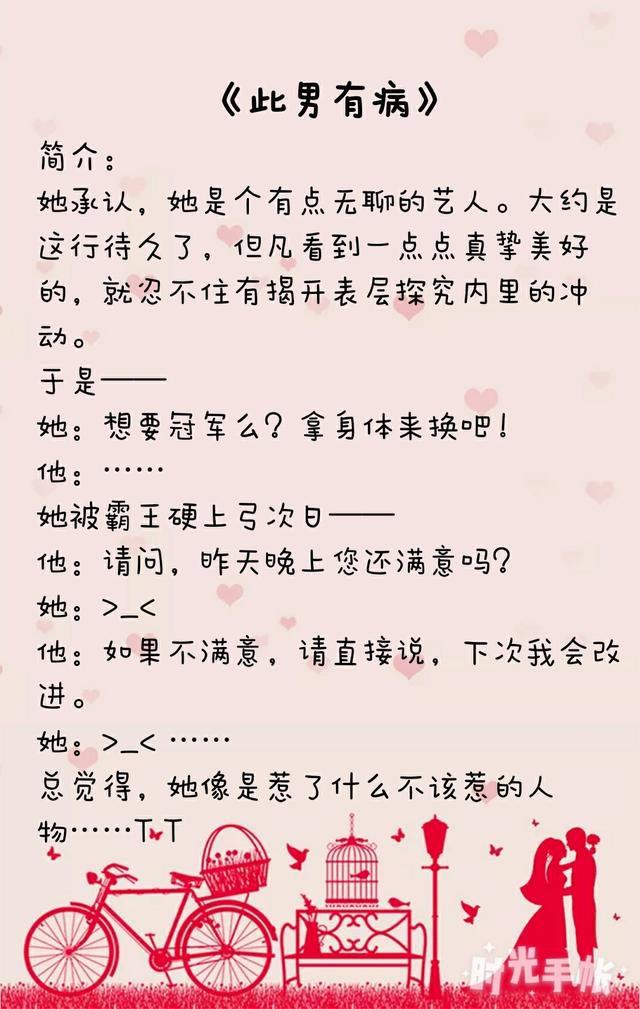 《此男有病》
简介：
她承认，她是个有点无聊的艺人。大约是
这行待久了，但凡看到一点点真挚美好
的，就忍不住有揭开表层探究内里的冲
动。
于是——
她：想要冠军么？拿身体来换吧！
他：……
她被霸王硬上弓次日——
他：请问，昨天晚上您还满意吗？
她：>_<
他：如果不满意，请直接说，下次我会改
进。
她：>_< ……
总觉得，她像是惹了什么不该惹的人
物……T_T
时光手帐